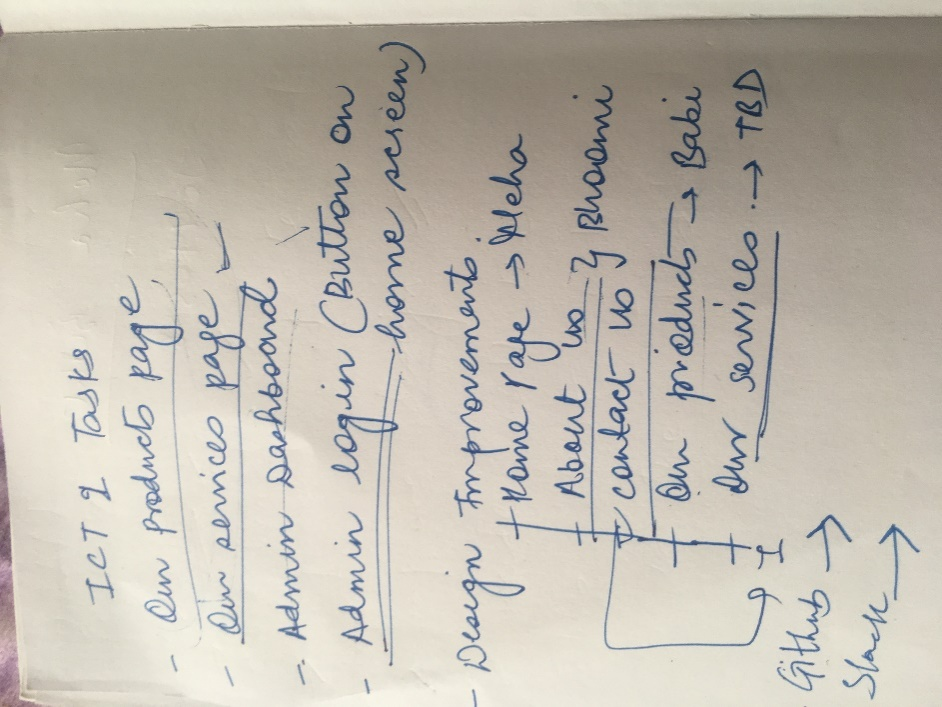 ICT 2 Tasks
- Our products page
- Our services page ✓
- Admin Dashboard
- Admin login (Button on
home screen)
- Design Improvements
Home Page → Neha
About us } Bhoomi
contact us
Our products → Babi
Our services → TBD
Github →
Slack →